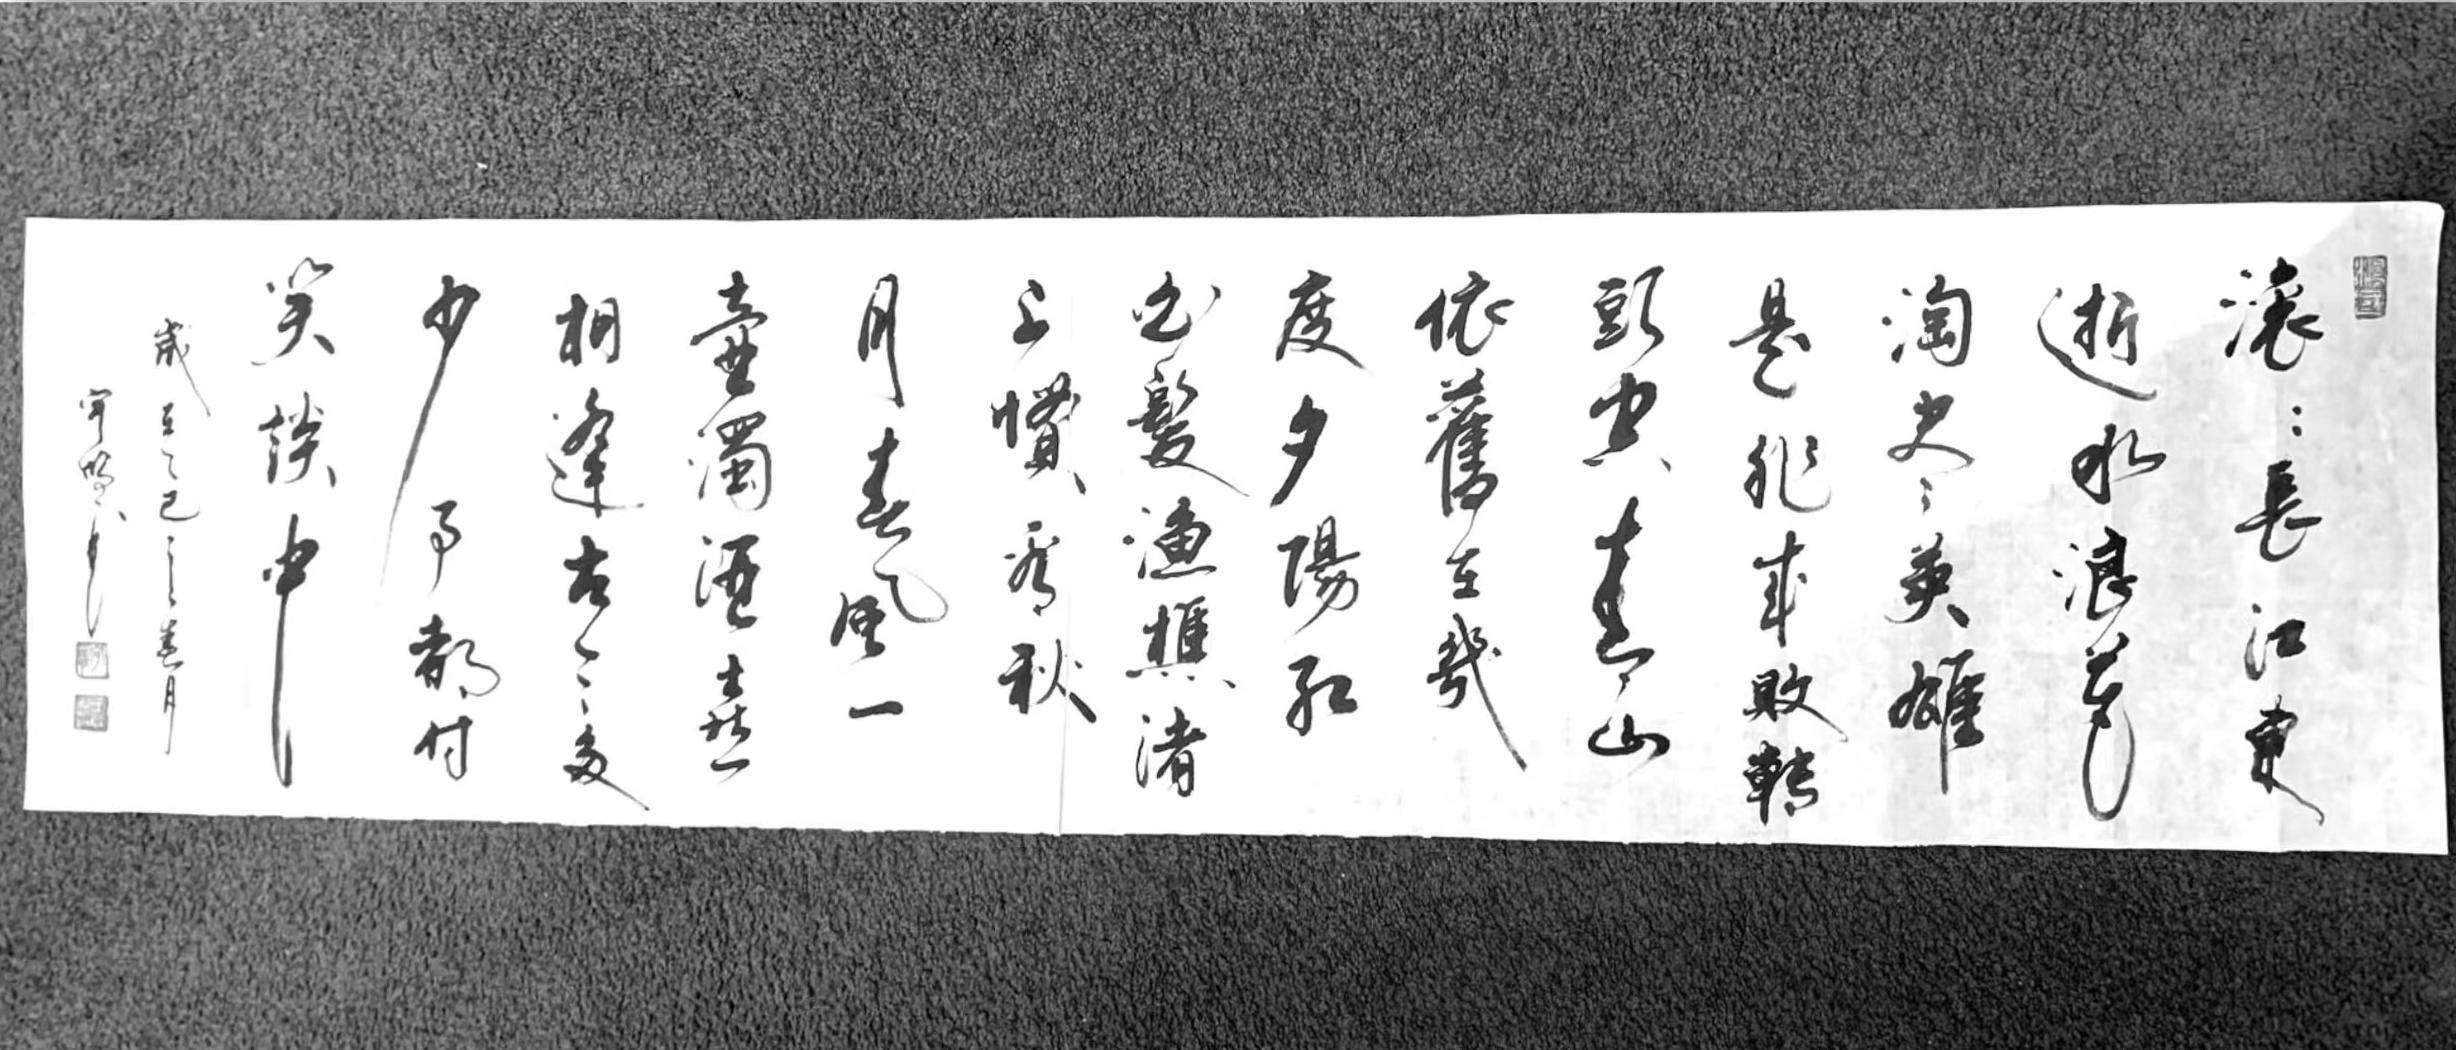 滾〻長江東
逝水浪花
淘尽英雄
是非成敗轉
頭空青山
依舊在幾
度夕陽紅
白髮漁樵渚
上慣看秋
月春風一
壺濁酒喜
相逢古今多
少事都付
笑談中
歲在乙巳之春月